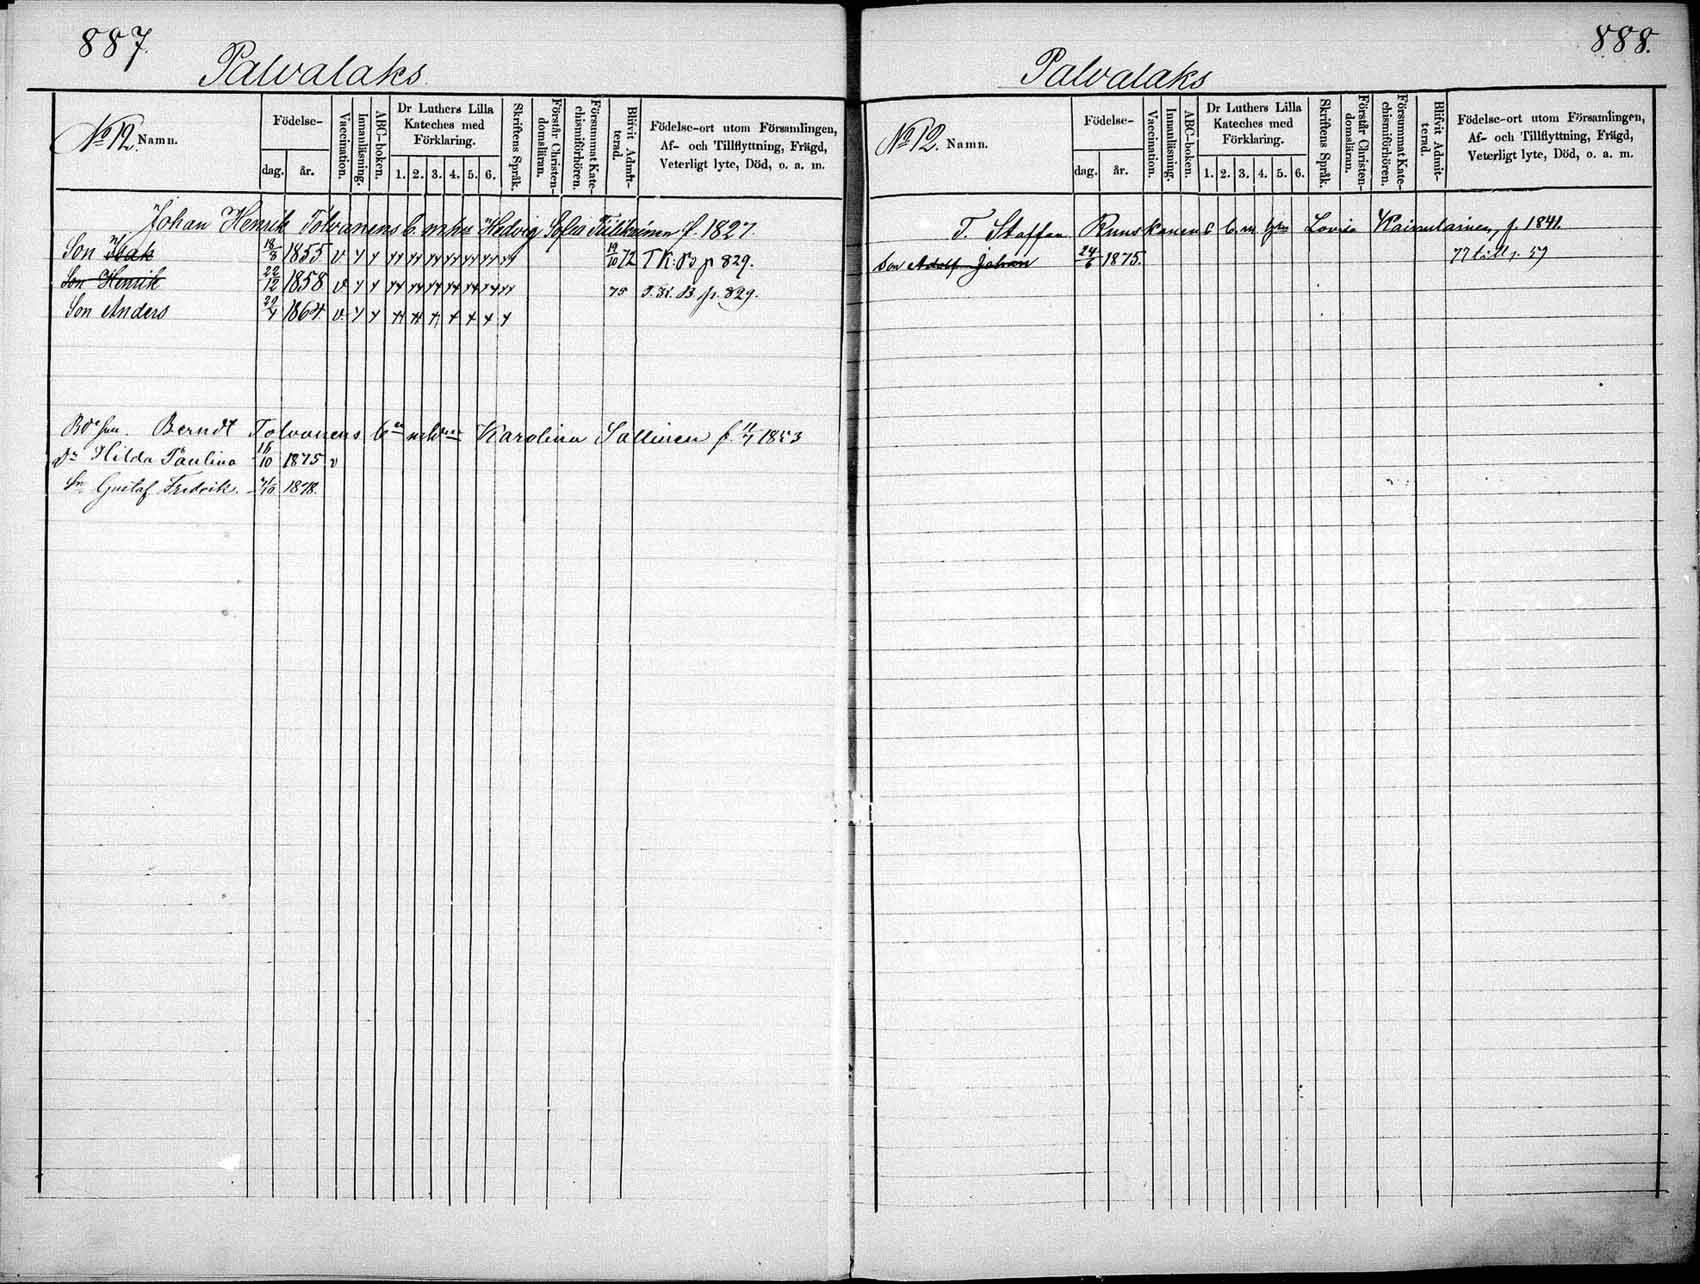 887.
Palvalaks
No 12. Namn.
Födelse-
dag. år.
Vaccination.
Innanläsning.
ABC-boken.
Dr Luthers Lilla
Kateches med
Förklaring.
1. 2. 3. 4. 5. 6.
Skriftens Språk.
Förstår Christen-
domsläran.
Försummat Kate-
chismiförhören.
Blifvit Admit-
terad.
Födelse-ort utom Församlingen,
Af- och Tillflyttning, Frägd,
Veterligt lyte, Död, o. a. m.
Johan Henrik Tolvanens b. m. hu Hedvig Sofia f. 1827.
Son Isak 18/8 1855 v 19/10 72 T K: B p 829.
Son Henrik 22/12 1858 v 75 T. K. B. p. 829.
Son Anders 29/4 1864 v
Berndt Tolvanens Karolina Sallinen f. 11/7 1853
Dr Hilda Paulina 16/10 1875 v
Sn Gustaf Fredrik. 1878.
888.
Palvalaks
No 12. Namn.
Födelse-
dag. år.
Vaccination.
Innanläsning.
ABC-boken.
Dr Luthers Lilla
Kateches med
Förklaring.
1. 2. 3. 4. 5. 6.
Skriftens Språk.
Förstår Christen-
domsläran.
Försummat Kate-
chismiförhören.
Blifvit Admit-
terad.
Födelse-ort utom Församlingen,
Af- och Tillflyttning, Frägd,
Veterligt lyte, Död, o. a. m.
T. Staffan Ruuskanens b. m. Lovisa Kainulainen, f. 1841.
Son Adolf Johan 24/6 1875. 77 till p. 57